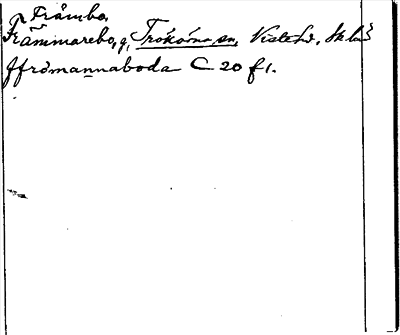 Främbo,
Främmarebo, g, Trökörna sn, Viste hd, Skb
ffrömannaboda C 20 f 1.